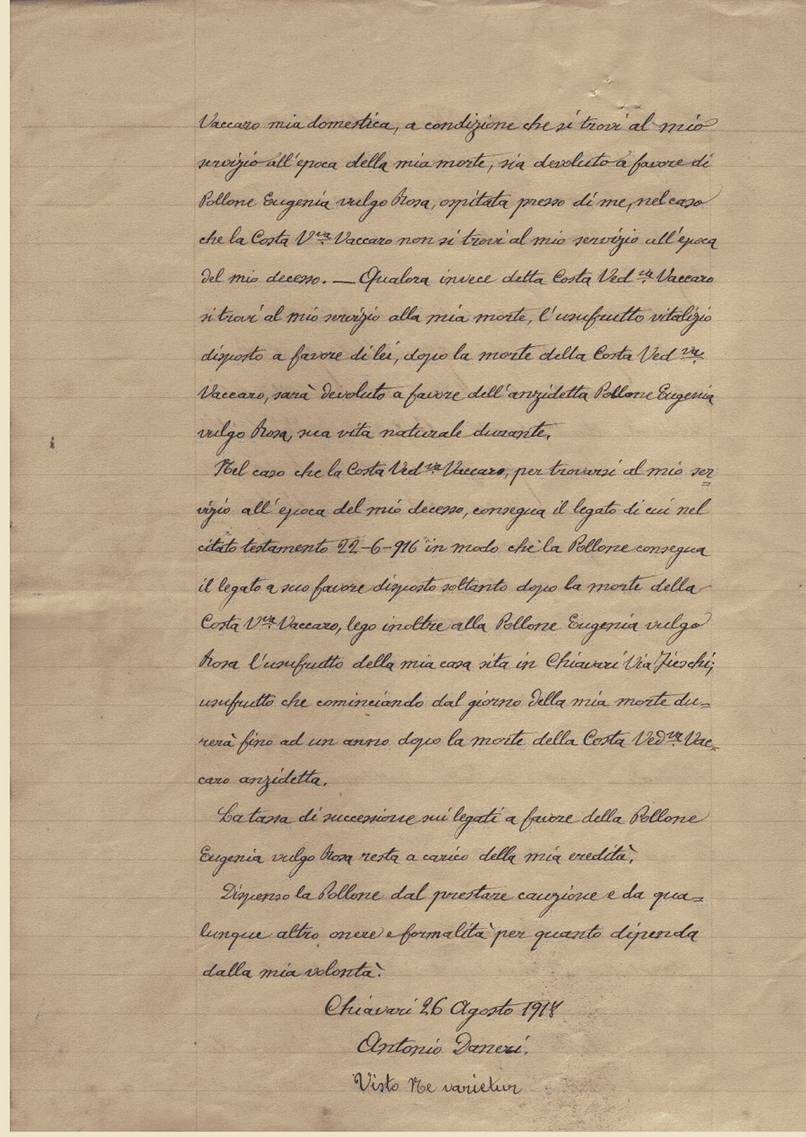 Vaccaro mia domestica, a condizione che si trovi al mio
servizio all'epoca della mia morte, sia devoluto a favore di
Pollone Eugenia vulgo Rosa, ospitata presso di me, nel caso
che la Costa V.va Vaccaro non si trovi al mio servizio all'epoca
del mio decesso. — Qualora invece detta Costa Ved.va Vaccaro
si trovi al mio servizio alla mia morte, l'usufrutto vitalizio
disposto a favore di lei, dopo la morte della Costa Ved.va
Vaccaro, sarà devoluto a favore dell'anzidetta Pollone Eugenia
vulgo Rosa, sua vita naturale durante.
Nel caso che la Costa Ved.va Vaccaro, per trovarsi al mio ser=
vizio all'epoca del mio decesso, consegua il legato di cui nel
citato testamento 22-6-916 in modo che la Pollone consegua
il legato a suo favore disposto soltanto dopo la morte della
Costa V.va Vaccaro, lego inoltre alla Pollone Eugenia vulgo
Rosa l'usufrutto della mia casa sita in Chiavari Via Fieschi;
usufrutto che cominciando dal giorno della mia morte du=
rerà fino ad un anno dopo la morte della Costa Ved.va Vac=
caro anzidetta.
La tassa di successione sui legati a favore della Pollone
Eugenia vulgo Rosa resta a carico della mia eredità.
Dispenso la Pollone dal prestare cauzione e da qua=
lunque altro onere e formalità per quanto dipenda
dalla mia volontà.
Chiavari 26 Agosto 1918
Antonio Daneri.
Visto Ne varietur